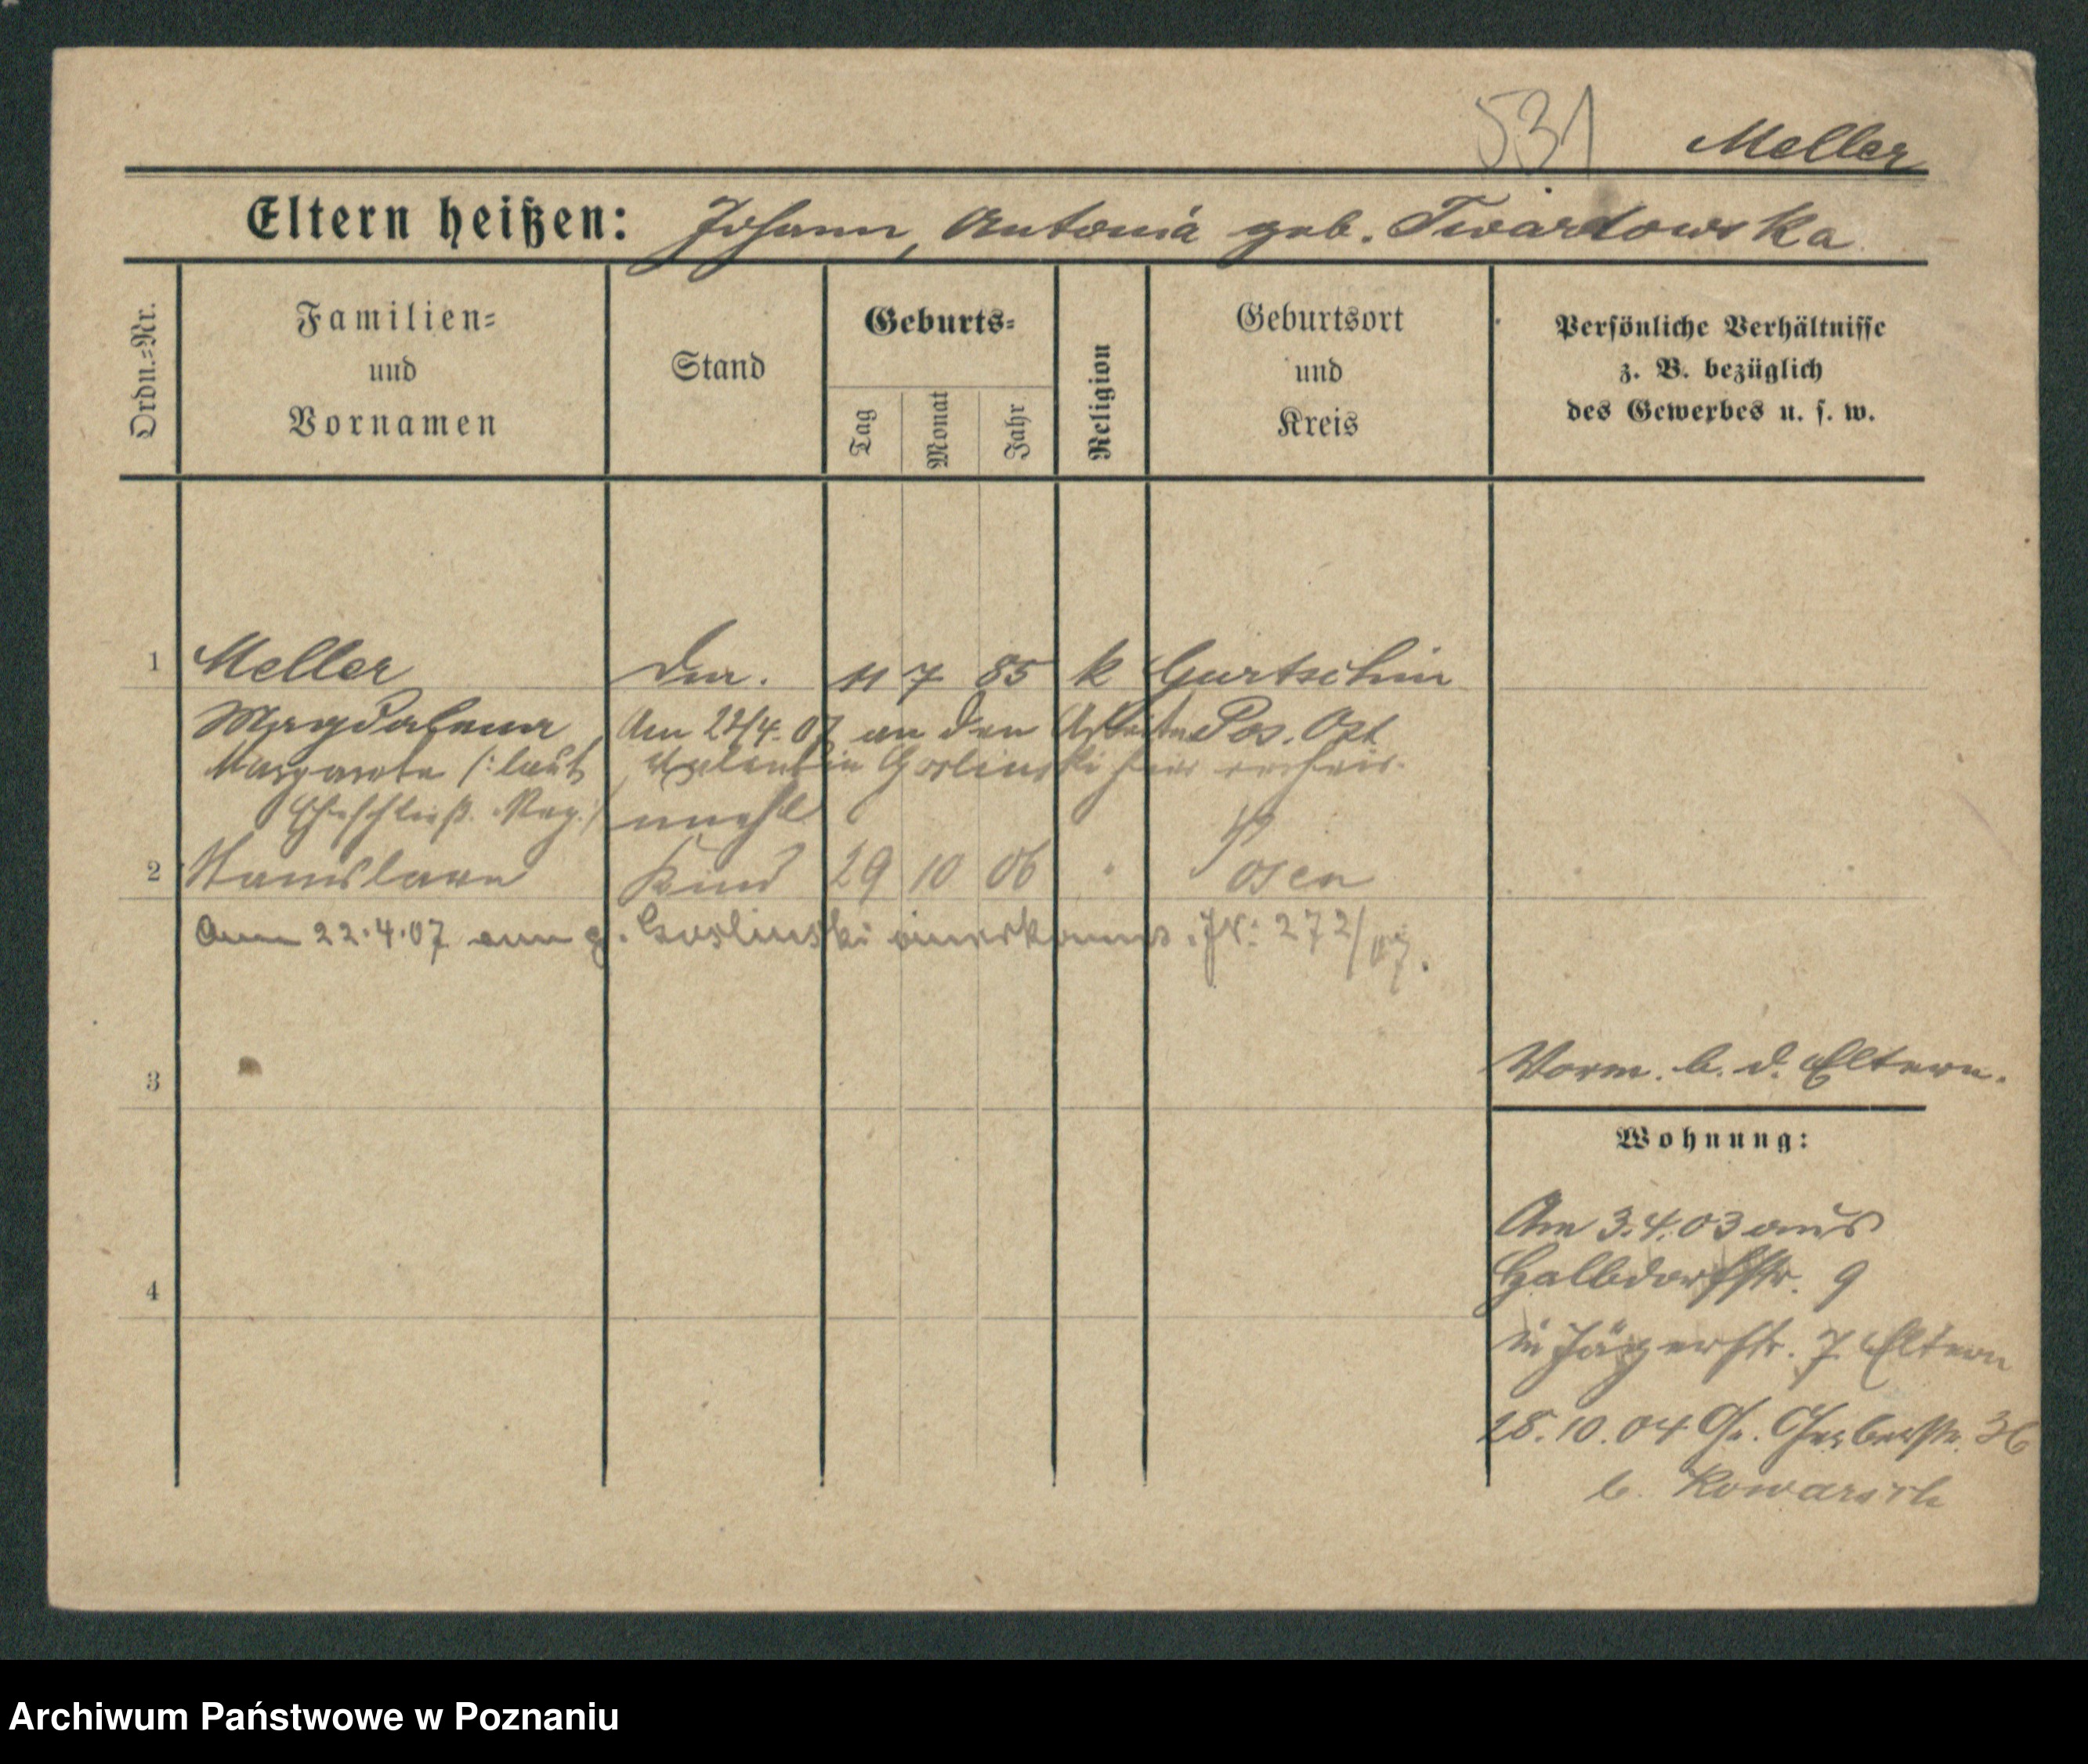 531 Meller
Eltern heißen: Johann, Antonia geb. Twardowska
Ordn.-Nr.
Familien-
und
Vornamen
Stand
Geburts-
Tag
Monat
Jahr
Religion
Geburtsort
und
Kreis
Persönliche Verhältnisse
z. B. bezüglich
des Gewerbes u. s. w.
1 Meller 11 7 85 k Gurtschin
Magdalena Am 22/4. 07 an den Arbeiter Pos. Ost
Margarete /: laut Valentin Goslinski hier verheir.
Eheschließ. Reg. :/ unehl
2 Stanislawa Kind 29 10 06 " Posen
Am 22.4.07 von g. Goslinski anerkannt. J№: 272/07.
3
Vorm. b. d. Eltern.
Wohnung:
4
Am 3.4.03 aus
Halbdorfstr. 9
in Jägerstr. 7 Eltern
28.10.04 Gr. Gerberstr. 36
b.
Archiwum Państwowe w Poznaniu